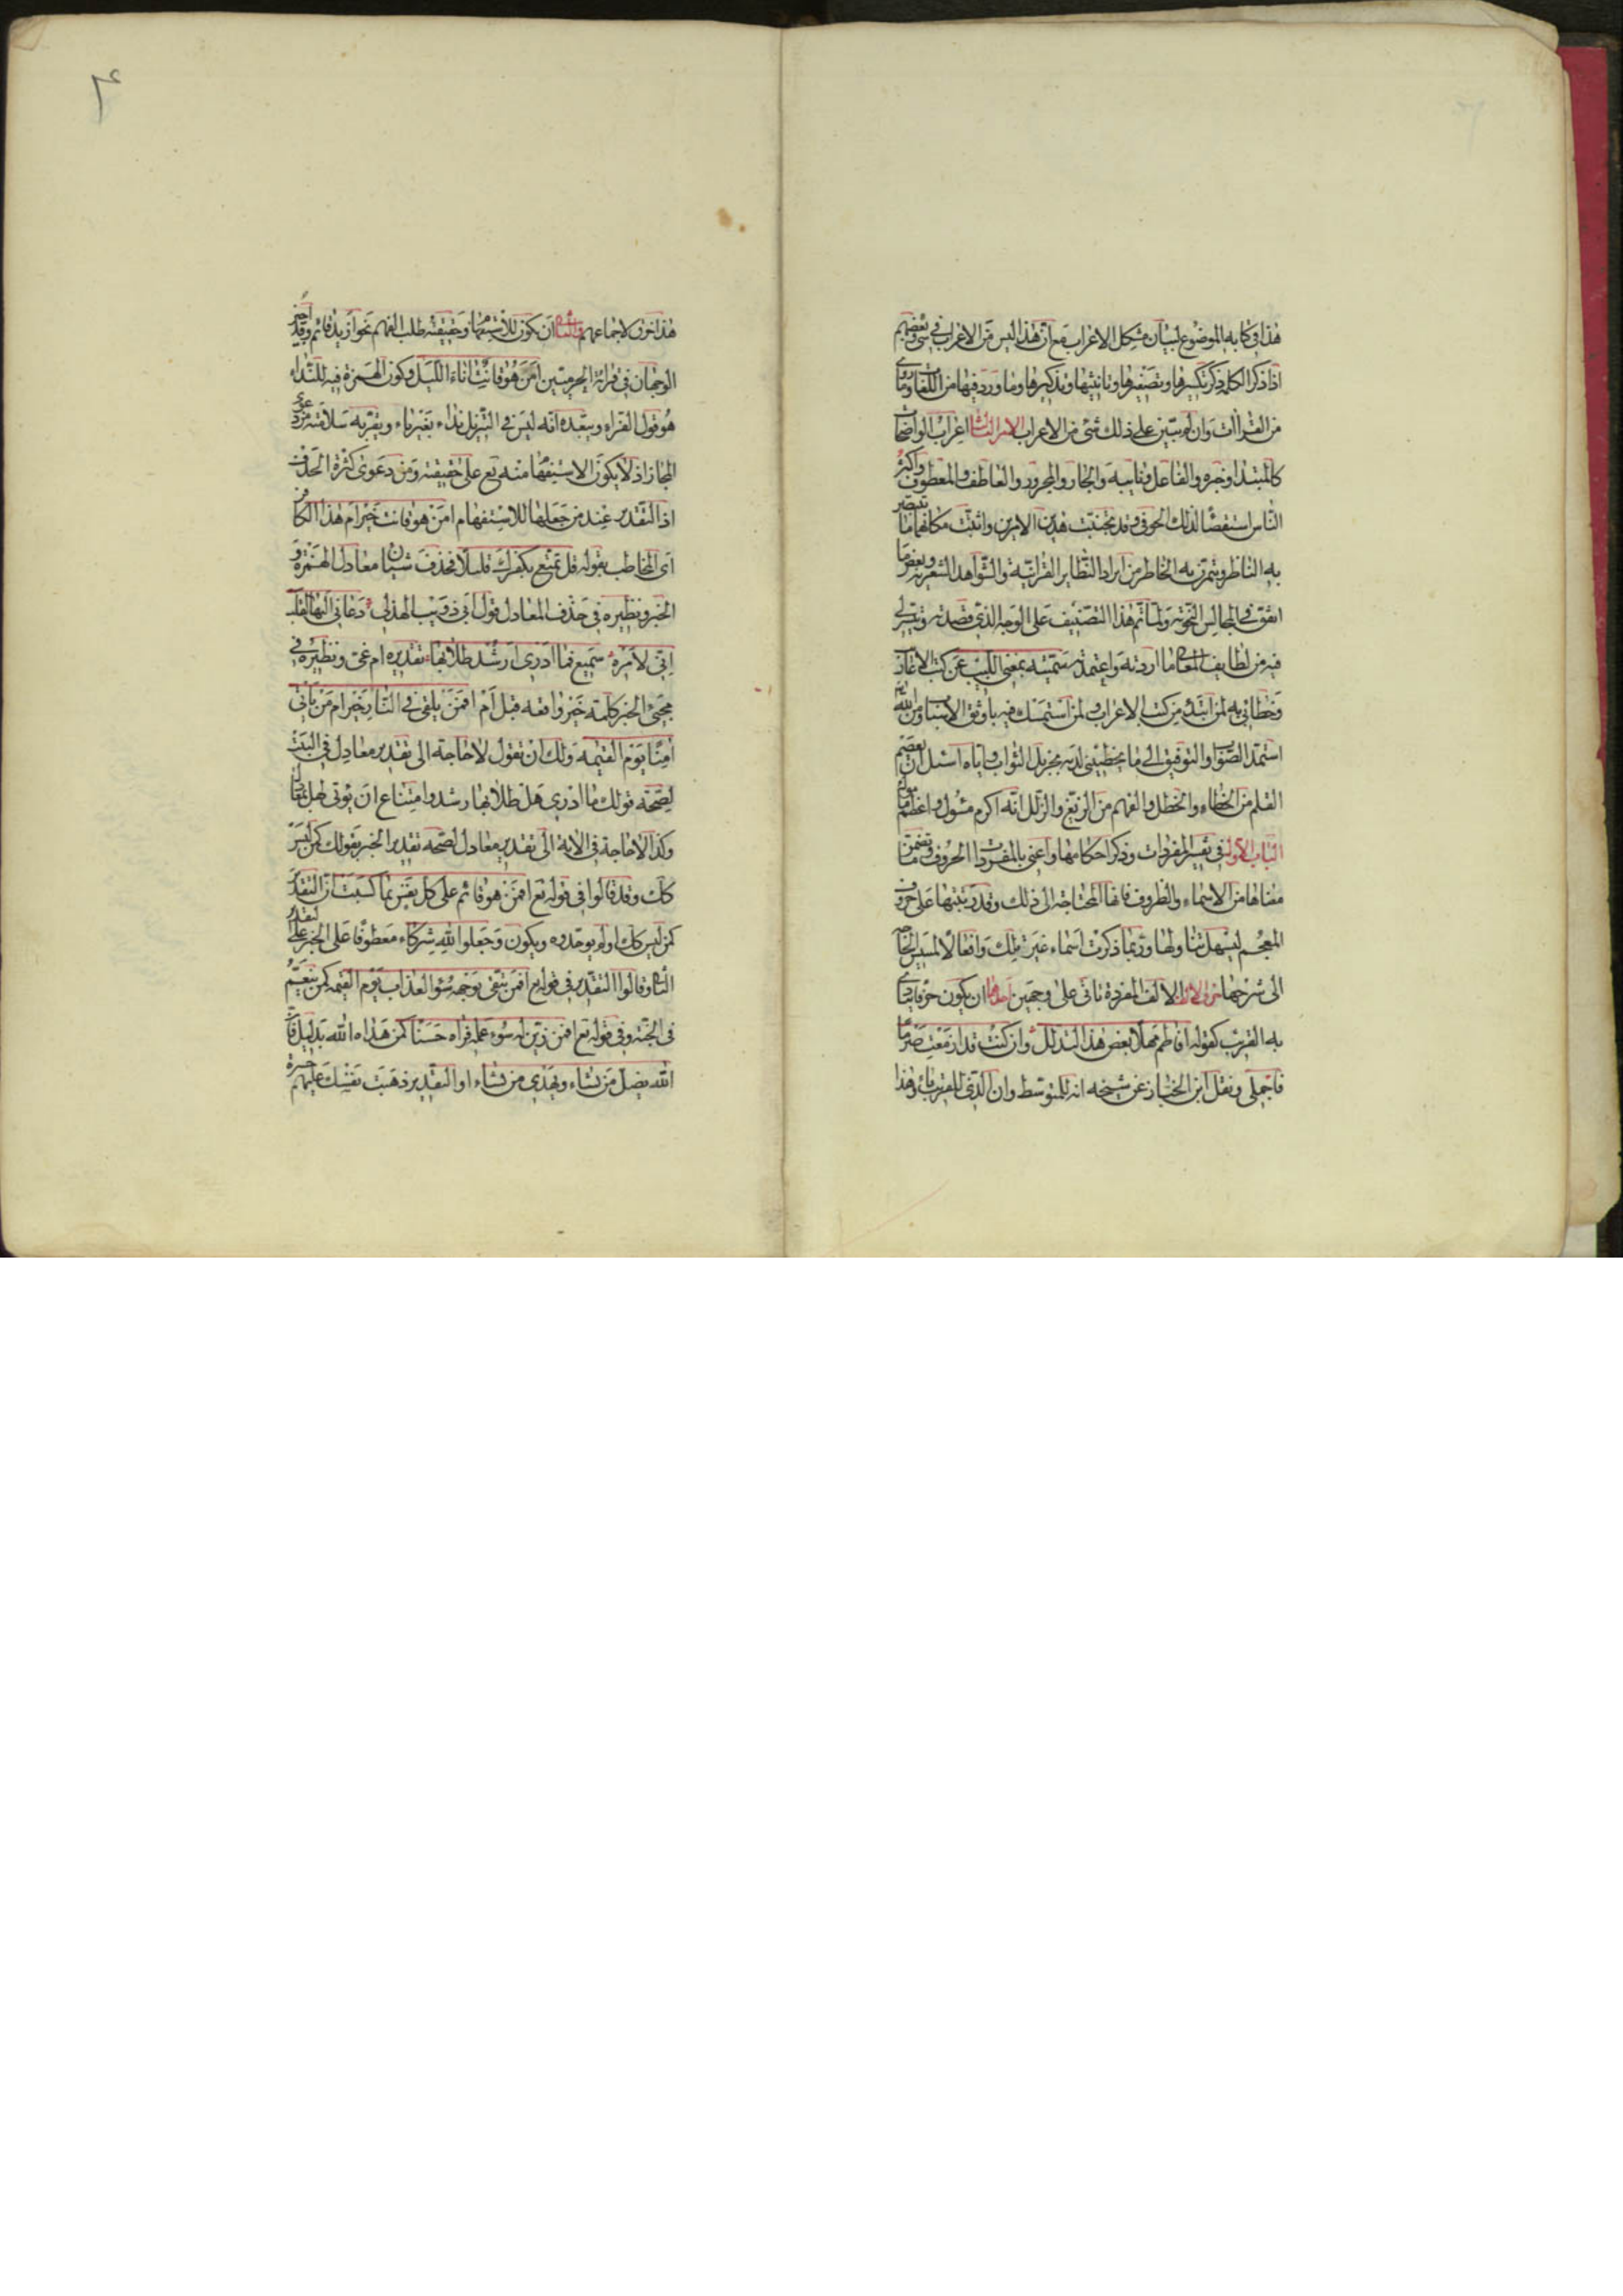 هذا في كتابه الموضوع لبيان مشكل الاعراب مع ان هذا ليس من الاعراب في شئ وبعضهم
اذا ذكر الكلمة ذكر تكسيرها وتصغيرها وتانيثها وتذكيرها وما ورد فيها من اللغات وما روى
من القراآت وان لم يبتن على ذلك شئ من الاعراب الامر الثالث اعراب الواضحات
كالمبتدا وخبره والفاعل ونايبه والجار والمجرور والعاطف والمعطوف واكثر
الناس استقصاء لذلك الحوفى وقد تجنبت هذين الامرين واتيت مكانهما بما يتبصر
به الناظر ويتمرن به الخاطر من ايراد النظاير القرانية والشواهد الشعرية وبعض ما
اتفق في المجالس النحوية ولما تم هذا التصنيف على الوجه الذي قصدته وتيسر لي
فيه من لطايف المعارف ما اردته واعتمدته سميته بمغني اللبيب عن كتب الاعاريب
وخطابي به لمن ابتدا في كتب الاعراب ولمن استمسك فيه باوثق الاسباب ومن الله تع
استمد الصواب والتوفيق الى ما يحظيني لديه بجزيل الثواب واياه اسئل ان يعصم
القلم من الخطاء والخطل والفهم من الزيغ والزلل انه اكرم مسئول واعظم مامول
الباب الاول في تفسير المفردات وذكر احكامها واعنى بالمفردات الحروف وما تضمن
معناها من الاسماء والظروف فانها المحتاجة الى ذلك وقد رتبتها على حروف
المعجم ليسهل تناولها وربما ذكرت اسماء غير تلك وافعالا لمسيس الحاجة
الى شرحها حرف الالف الالف المفردة تاتى على وجهين احدهما ان يكون حرفا ينادى
به القريب كقوله افاطم مهلا بعض هذا التدلل وان كنت قد ازمعت صرما
فاجملى ونقل ابن الخباز عن شيخه انه للمتوسط وان الذى للقريب يا وهذا
هذا خرق لاجماعهم والثاني ان يكون للاستفهام وحقيقته طلب الفهم نحو ازيد قائم وقد اجيز
الوجهان في قراءة الحرميين امن هو قانت اناء الليل وكون الهمزة فيه للنداء
هو قول الفراء ويبعده انه ليس في التنزيل نداء بغير ياء ويقربه سلامته من دعوى
المجاز اذ لا يكون الاستفهام منه تع على حقيقته ومن دعوى كثرة الحذف
اذ التقدير عند من جعلها للاستفهام امن هو قانت خير ام هذا الكافر
اى المخاطب بقوله قل تمتع بكفرك قليلا فحذف شيئان معادل الهمزة و
الخبر ونظيره في حذف المعادل قول ابى ذويب الهذلى دعاني اليها القلب
اني لامره سميع فما ادرى ارشد طلابها تقديره ام غى ونظيره في
مجئ الخبر كلمة خير واقعه قبل ام افمن يلقى في النار خير ام من ياتى
امنا يوم القيمه ولك ان تقول لا حاجة الى تقدير معادل في البيت
لصحة قولك ما ادرى هل طلابها رشد وامتناع ان يوتى لهل بمعادل
وكذا لا حاجة في الاية الى تقدير معادل لصحة تقدير الخبر بقولك كمن ليس
كك وقد قالوا في قوله تع افمن هو قائم على كل نفس بما كسبت ان التقدير
كمن ليس كك اولم يوحدوه ويكون وجعلوا لله شركاء معطوفا على الخبر على التقدير
الثانى وقالوا التقدير في قوله تع افمن يتقى بوجهه سوء العذاب يوم القيمه كمن ينعم
في الجنة وفي قوله تع افمن زين له سوء عمله فراه حسنا كمن هداه الله بدليل فان
الله يضل من يشاء ويهدى من يشاء او التقدير ذهبت نفسك عليهم حسرة